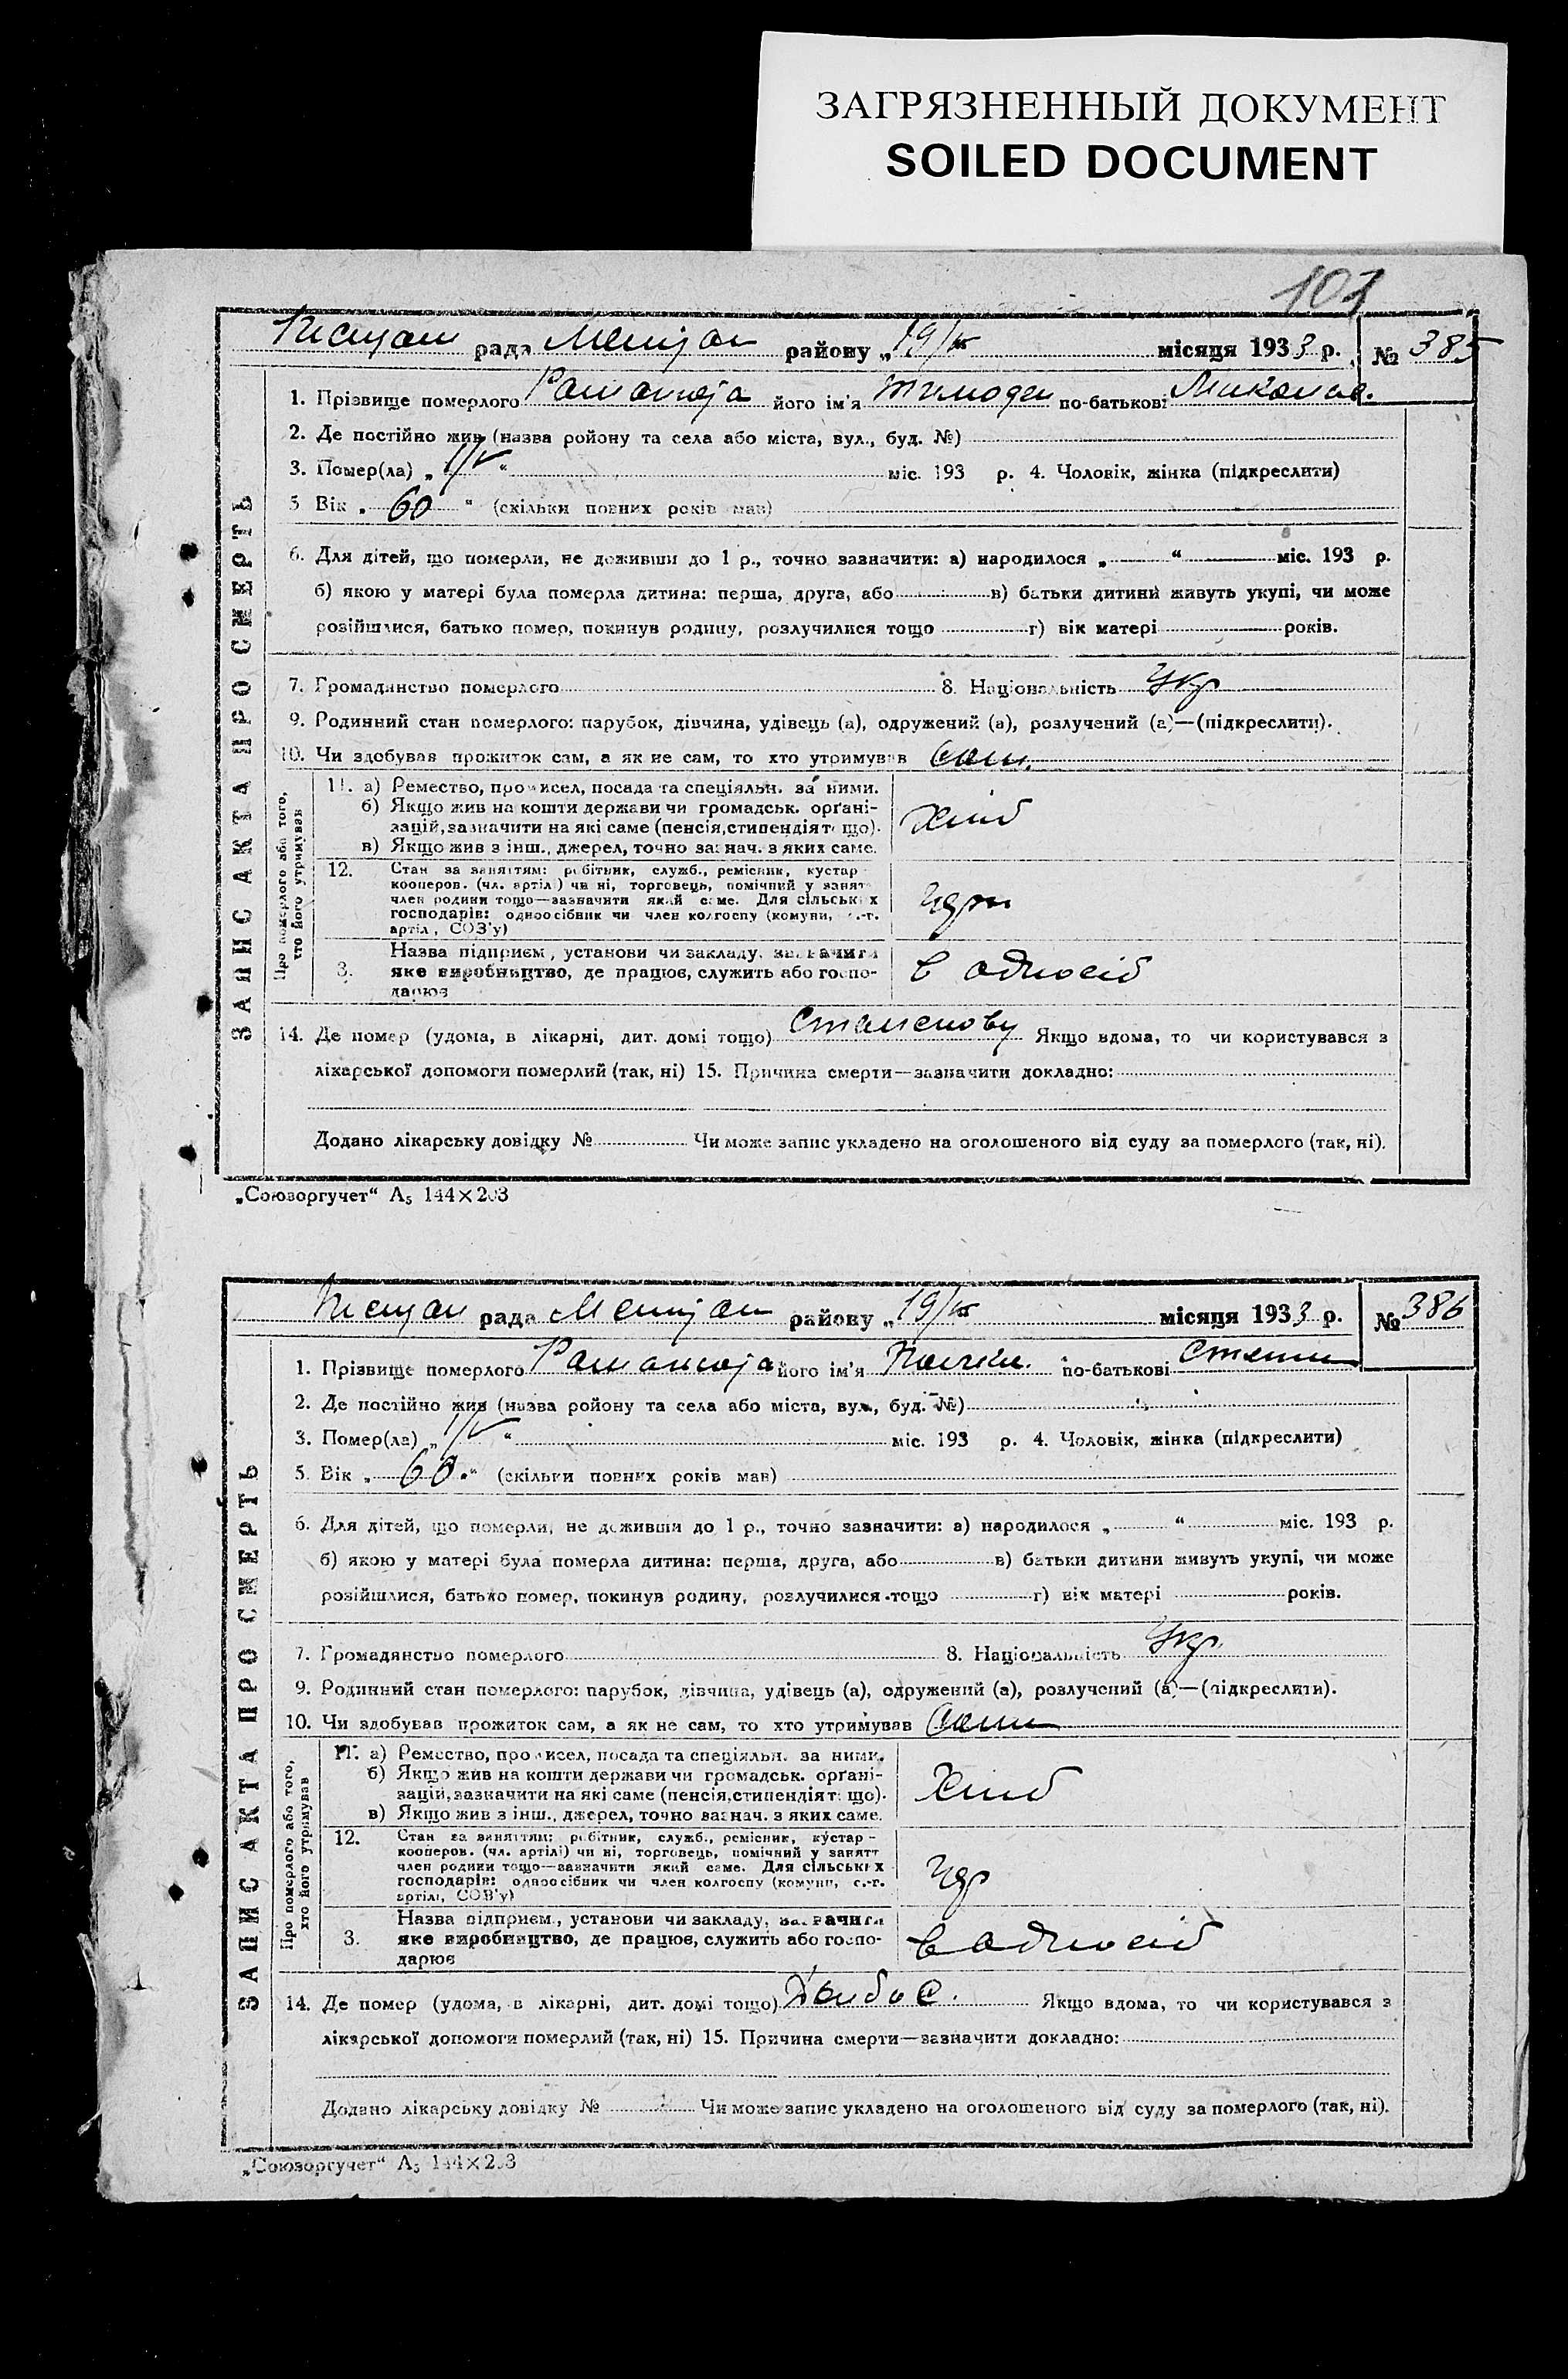 ЗАГРЯЗНЕННЫЙ ДОКУМЕНТ
SOILED DOCUMENT
рада районy „19/ місяця 1933 р. № 385
1. Прізвище померлого його ім'я Тимофеи по-батькові Микола.
2. Де постійно жив (назва ройону та села або міста, вул., буд. №)
3. Помер(ла) „1/V“ міс. 193 р. 4. Чоловік, жінка (підкреслити)
5 Вік „60“ (скільки повних років мав)
6. Для дітей, що померли, не доживши до 1 р., точно зазначити: а) народилося „ “ міс. 193 р.
б) якою у матері була померла дитина: перша, друга, або в) батьки дитини живуть укупі, чи може
розійшлися, батько помер, покинув родину, розлучилися тощо г) вік матері років.
7. Громадянство померлого 8. Національність Укр
9. Родинний стан померлого: парубок, дівчина, удівець (а), одружений (а), розлучений (а)—(підкреслити).
10. Чи здобував прожиток сам, а як не сам, то хто утримував Сам.
ЗАПИС АКТА ПРО СМЕРТЬ
Про померлого або того,
хто його утримував
11. а) Ремество, промисел, посада та спеціяльн. за ними.
б) Якщо жив на кошти держави чи громадськ. орґані-
зацій, зазначити на які саме (пенсія, стипендія тощо).
в) Якщо жив з інш., джерел, точно зазнач. з яких саме.
Хліб
12. Стан за заняттям: робітник, служб., ремісник, кустар
кооперов. (чл. артілі) чи ні, торговець, помічний у занят
член родини тощо—зазначити який саме. Для сільських
господарів: одноосібник чи член колгоспу (комуни, с.-г.
артіл, СОЗ'у)
3. Назва підприєм., установи чи закладу, зазначити
яке виробництво, де працює, служить або госпо-
дарює
в одноосіб
14. Де помер (удома, в лікарні, дит. домі тощо) Якщо вдома, то чи користувався з
лікарської допомоги померлий (так, ні) 15. Причина смерти—зазначити докладно:
Додано лікарську довідку № Чи може запис укладено на оголошеного від суду за померлого (так, ні).
„Союзоргучет“ А₅ 144×203
рада району „19/ місяця 1933 р. № 386
1. Прізвище померлого його ім'я по-батькові
2. Де постійно жив (назва ройону та села або міста, вул., буд. №)
3. Помер(ла) „1/V“ міс. 193 р. 4. Чоловік, жінка (підкреслити)
5. Вік „60.“ (скільки повних років мав)
6. Для дітей, що померли, не доживши до 1 р., точно зазначити: а) народилося „ “ міс. 193 р.
б) якою у матері була померла дитина: перша, друга, або в) батьки дитини живуть укупі, чи може
розійшлися, батько помер, покинув родину, розлучилися тощо г) вік матері років.
7. Громадянство померлого 8. Національність Укр.
9. Родинний стан померлого: парубок, дівчина, удівець (а), одружений (а), розлучений (а)—(підкреслити).
10. Чи здобував прожиток сам, а як не сам, то хто утримував Сам
ЗАПИС АКТА ПРО СМЕРТЬ
Про померлого або того,
хто його утримував
11. а) Ремество, промисел, посада та спеціяльн. за ними.
б) Якщо жив на кошти держави чи громадськ. орґані-
зацій, зазначити на які саме (пенсія, стипендія тощо).
в) Якщо жив з інш., джерел, точно зазнач. з яких саме.
Хліб
12. Стан за заняттям: робітник, служб., ремісник, кустар-
кооперов. (чл. артілі) чи ні, торговець, помічний у занятт
член родини тощо—зазначити який саме. Для сільських
господарів: одноосібник чи член колгоспу (комуни, с.-г.
артілі, СОЗ'у)
3. Назва підприєм., установи чи закладу, зазначити
яке виробництво, де працює, служить або госпо-
дарює
в одноосіб
14. Де помер (удома, в лікарні, дит. домі тощо) Якщо вдома, то чи користувався з
лікарської допомоги померлий (так, ні) 15. Причина смерти—зазначити докладно:
Додано лікарську довідку № Чи може запис укладено на оголошеного від суду за померлого (так, ні).
„Союзоргучет“ А₅ 144×203